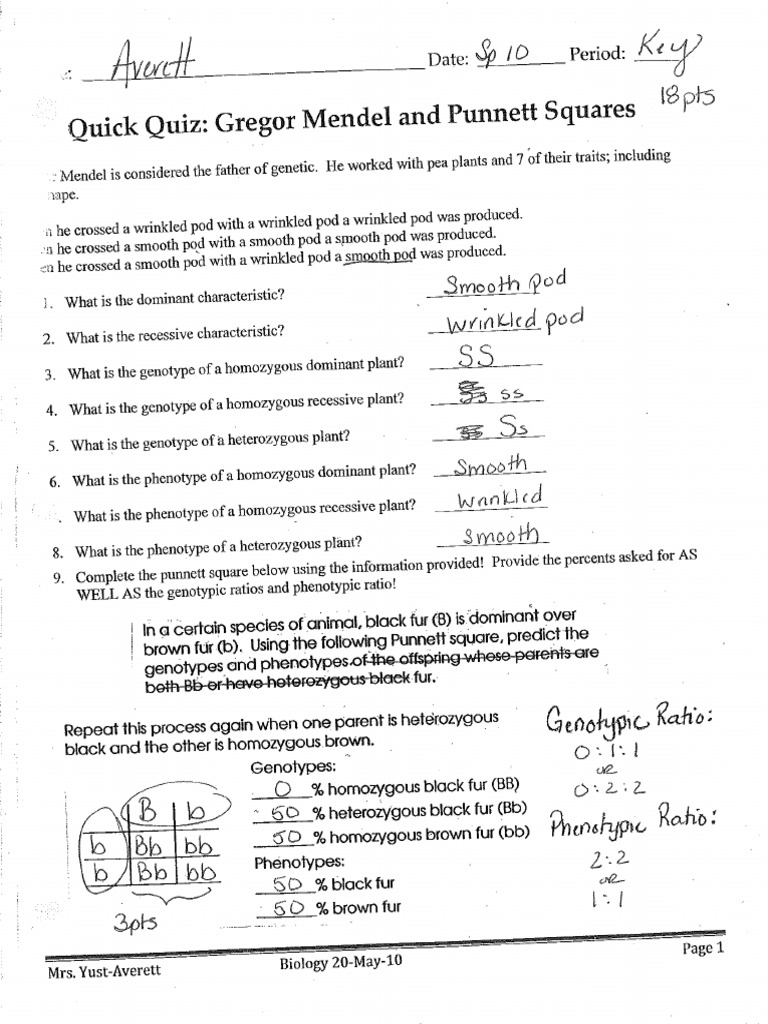 : Averett Date: Sp 10 Period: Key
18pts
Quick Quiz: Gregor Mendel and Punnett Squares
: Mendel is considered the father of genetic. He worked with pea plants and 7 of their traits; including
hape.
n he crossed a wrinkled pod with a wrinkled pod a wrinkled pod was produced.
n he crossed a smooth pod with a smooth pod a smooth pod was produced.
en he crossed a smooth pod with a wrinkled pod a smooth pod was produced.
1. What is the dominant characteristic? Smooth pod
2. What is the recessive characteristic? Wrinkled pod
3. What is the genotype of a homozygous dominant plant? SS
4. What is the genotype of a homozygous recessive plant? ss
5. What is the genotype of a heterozygous plant? Ss
6. What is the phenotype of a homozygous dominant plant? Smooth
. What is the phenotype of a homozygous recessive plant? Wrinkled
8. What is the phenotype of a heterozygous plant? Smooth
9. Complete the punnett square below using the information provided! Provide the percents asked for AS
WELL AS the genotypic ratios and phenotypic ratio!
In a certain species of animal, black fur (B) is dominant over
brown fur (b). Using the following Punnett square, predict the
genotypes and phenotypes of the offspring whose parents are
both Bb or have heterozygous black fur.
Repeat this process again when one parent is heterozygous
black and the other is homozygous brown.
Genotypes:
0 % homozygous black fur (BB)
50 % heterozygous black fur (Bb)
50 % homozygous brown fur (bb)
Phenotypes:
50 % black fur
50 % brown fur
B b
b Bb bb
b Bb bb
3pts
Genotypic Ratio:
0:1:1
or
0:2:2
Phenotypic Ratio:
2:2
or
1:1
Mrs. Yust-Averett Biology 20-May-10 Page 1